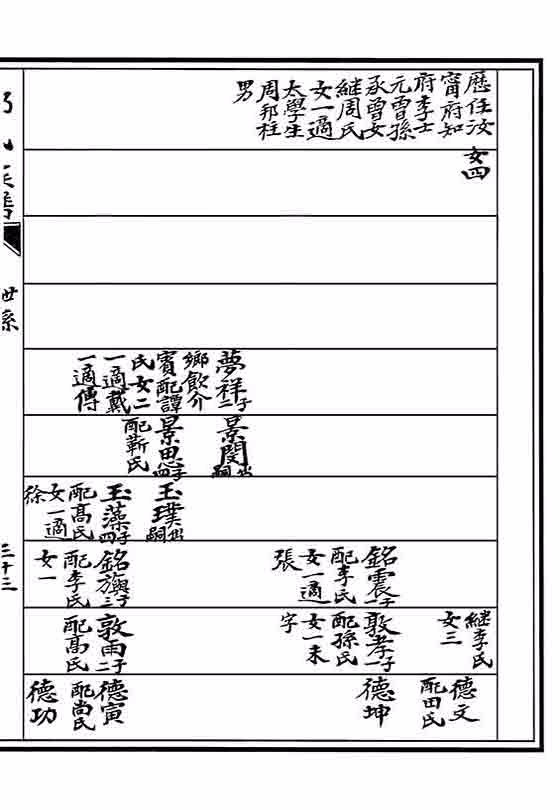 歷任汝
甯府知
府李士
元曾孫
承曾女
繼周氏
女一適
太學生
周邦柱
男
女四
夢祥二子
鄉飲介
賓配譚
氏女二
一適戴
一適傳
景閔出嗣
景思四子
配靳氏
玉璞出嗣
玉藻四子
配髙氏
女一適
徐
銘震一子
配李氏
女一適
張
銘旐三子
配李氏
女一
繼李氏
女三
敦孝一子
配孫氏
女一未
字
敦雨二子
配髙氏
德文
配田氏
德坤
德寅
配尚氏
德功
世系
三十三